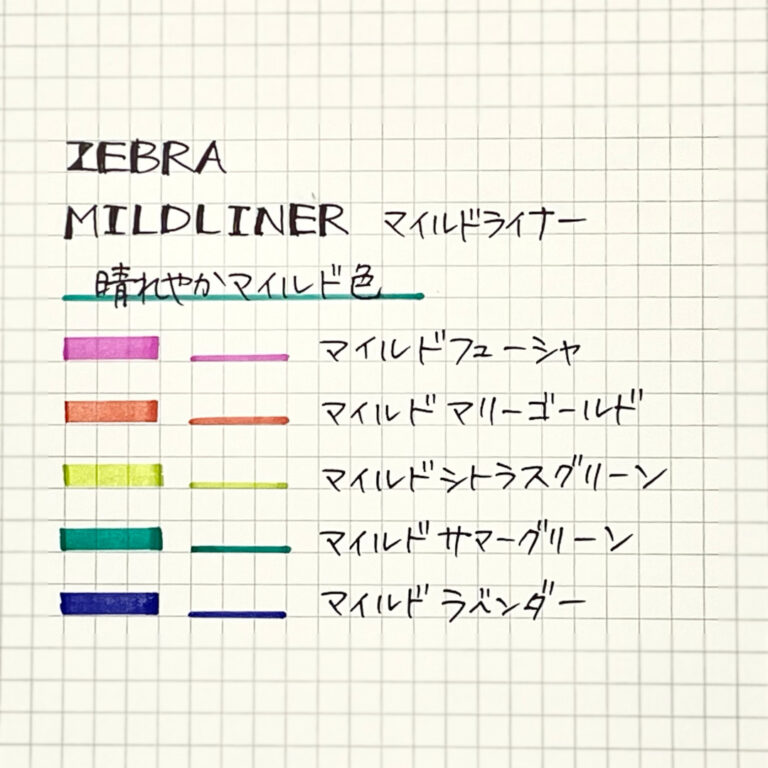 ZEBRA
MILDLINER マイルドライナー
晴れやかマイルド色
マイルドフューシャ
マイルドマリーゴールド
マイルドシトラスグリーン
マイルドサマーグリーン
マイルドラベンダー